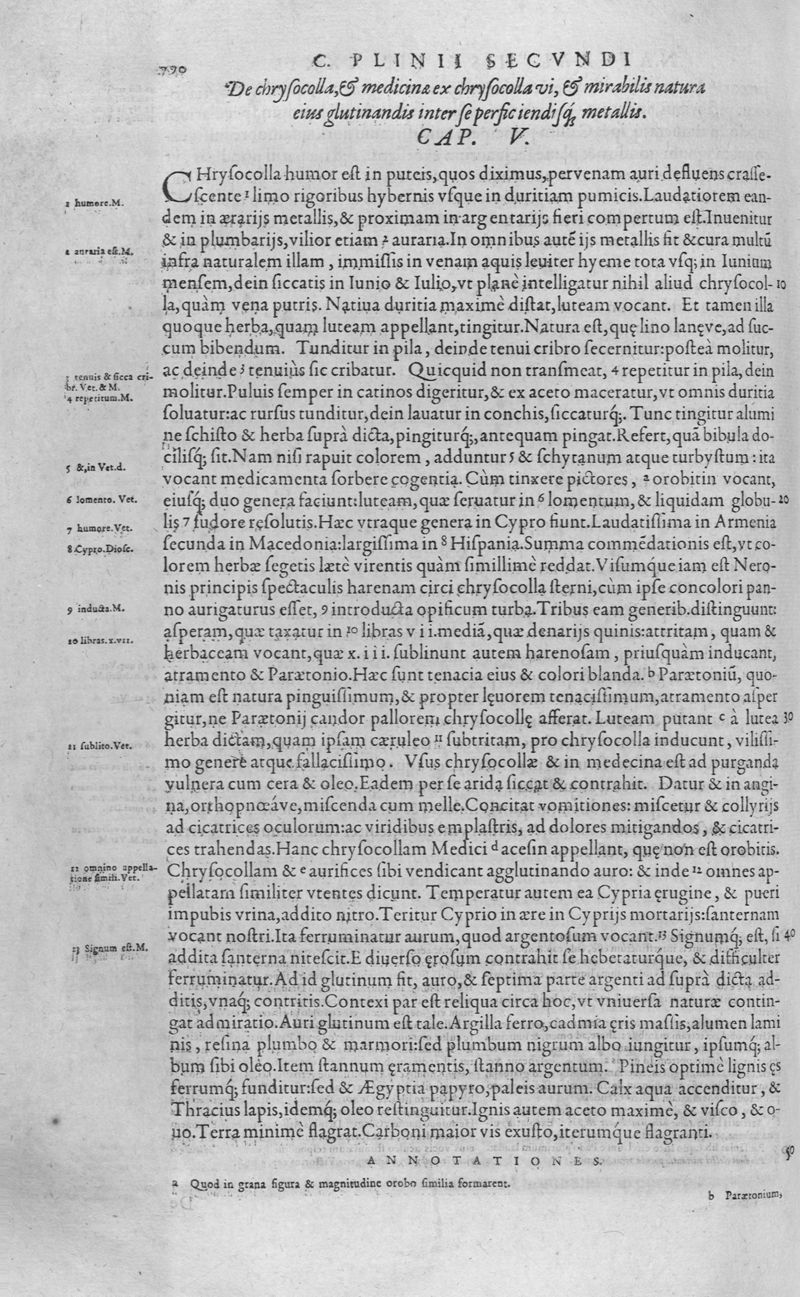 790
C. PLINII SECVNDI
De chrysocolla, & medicina ex chrysocolla vi, & mirabilis natura
eius glutinandis inter se perficiendisq; metallis.
CAP. V.
CHrysocolla humor est in puteis, quos diximus, per venam auri defluens crasse-
scente 1 limo rigoribus hybernis vsque in duritiam pumicis. Laudatiorem ean-
dem in ærarijs metallis, & proximam in argentarijs fieri compertum est. Inuenitur
& in plumbarijs, vilior etiam 2 auraria. In omnibus autē ijs metallis fit & cura multū
infra naturalem illam, immissis in venam aquis leuiter hyeme tota vsq; in Iunium
mensem, dein siccatis in Iunio & Iulio, vt planè intelligatur nihil aliud chrysocol- 10
la, quàm vena putris. Natiua duritia maximè distat, luteam vocant. Et tamen illa
quoque herba, quam luteam appellant, tingitur. Natura est, quę lino lanęve, ad suc-
cum bibendum. Tunditur in pila, deinde tenui cribro secernitur: posteà molitur,
ac deinde 3 tenuiùs sic cribatur. Quicquid non transmeat, 4 repetitur in pila, dein
molitur. Puluis semper in catinos digeritur, & ex aceto maceratur, vt omnis duritia
soluatur: ac rursus tunditur, dein lauatur in conchis, siccaturq;. Tunc tingitur alumi
ne schisto & herba suprà dicta, pingiturq;, antequam pingat. Refert, quā bibula do-
cilisq; sit. Nam nisi rapuit colorem, adduntur 5 & schytanum atque turbystum: ita
vocant medicamenta sorbere cogentia. Cùm tinxere pictores, a orobitin vocant,
eiusq; duo genera faciunt: luteam, quæ seruatur in 6 lomentum, & liquidam globu- 20
lis 7 sudore resolutis. Hæc vtraque genera in Cypro fiunt. Laudatissima in Armenia
secunda in Macedonia: largissima in 8 Hispania. Summa commēdationis est, vt co-
lorem herbæ segetis lætè virentis quàm simillimè reddat. Visumque iam est Nero-
nis principis spectaculis harenam circi chrysocolla sterni, cùm ipse concolori pan-
no aurigaturus esset, 9 introducta opificum turba. Tribus eam generib. distinguunt:
asperam, quæ taxatur in 10 libras v i i. mediā, quæ denarijs quinis: attritam, quam &
herbaceam vocant, quæ x. i i i. sublinunt autem harenosam, priusquàm inducant,
atramento & Parætonio. Hæc sunt tenacia eius & colori blanda. b Parætoniū, quo-
niam est natura pinguissimum, & propter lęuorem tenacissimum, atramento asper
gitur, ne Parætonij candor pallorem chrysocollę afferat. Luteam putant c à lutea 30
herba dictam, quam ipsam cæruleo 11 subtritam, pro chrysocolla inducunt, vilissi-
mo genere atque fallacissimo. Vsus chrysocollæ & in medecina est ad purganda
vulnera cum cera & oleo. Eadem per se arida siccat & contrahit. Datur & in angi-
na, orthopnœáve, miscenda cum melle. Concitat vomitiones: miscetur & collyrijs
ad cicatrices oculorum: ac viridibus emplastris, ad dolores mitigandos, & cicatri-
ces trahendas. Hanc chrysocollam Medici d acesin appellant, quę non est orobitis.
Chrysocollam & e aurifices sibi vendicant agglutinando auro: & inde 12 omnes ap-
pellatam similiter vtentes dicunt. Temperatur autem ea Cypria ęrugine, & pueri
impubis vrina, addito nitro. Teritur Cyprio in ære in Cyprijs mortarijs: santernam
vocant nostri. Ita ferruminatur aurum, quod argentosum vocant. 13 Signumq; est, si 40
addita santerna nitescit. E diuerso ęrosum contrahit se hebetaturque, & difficulter
ferruminatur. Ad id glutinum fit, auro, & septima parte argenti ad suprà dicta ad-
ditis, vnaq; contritis. Contexi par est reliqua circa hoc, vt vniuersa naturæ contin-
gat admiratio. Auri glutinum est tale. Argilla ferro, cadmia ęris massis, alumen lami
nis, resina plumbo & marmori: sed plumbum nigrum albo iungitur, ipsumq; al-
bum sibi oleo. Item stannum ęramentis, stanno argentum. Pineis optimè lignis ęs
ferrumq; funditur: sed & Ægyptia papyro, paleis aurum. Calx aqua accenditur, &
Thracius lapis, idemq; oleo restinguitur. Ignis autem aceto maximè, & visco, & o-
uo. Terra minimè flagrat. Carboni maior vis exusto, iterumque flagranti.
50
ANNOTATIONES.
a Quod in grana figura & magnitudine orobo similia formarent.
b Parætonium,
1 humore. M.
2 auraria est. M.
3 tenuis & sicca cri-
br. Vet. & M.
4 repetitum. M.
5 &, in Vet. d.
6 lomento. Vet.
7 humore. Vet.
8 Cypro. Diosc.
9 inducta. M.
10 libras. x. vii.
11 sublito. Vet.
12 omnino appella-
tione simili. Vet.
13 Signum est. M.